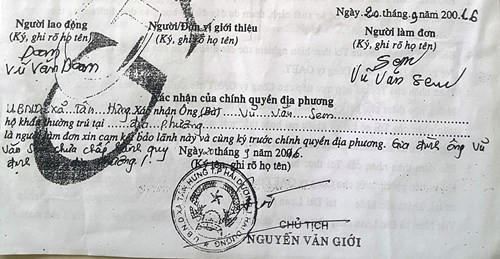 Ngày 20 tháng 9 năm 2006
Người lao động Người/Đơn vị giới thiệu Người làm đơn
(Ký, ghi rõ họ tên) (Ký, ghi rõ họ tên) (Ký, ghi rõ họ tên)
Vũ Văn Sem
Xác nhận của chính quyền địa phương
UBND xã Tân Hưng Xác nhận Ông (Bà) Vũ Văn Sem
hộ khẩu thường trú tại địa phương
là người làm đơn xin cam kết bảo lãnh này và cùng ký trước chính quyền địa phương. Gia đình ông Vũ
Văn chưa chấp hành quy
định địa phương!
Ngày 20 tháng 9 năm 2006
(Ký tên, ghi rõ họ tên)
U.B.N.D XÃ TÂN HƯNG T.P HẢI DƯƠNG T. HẢI DƯƠNG
CHỦ TỊCH
NGUYỄN VĂN GIỚI